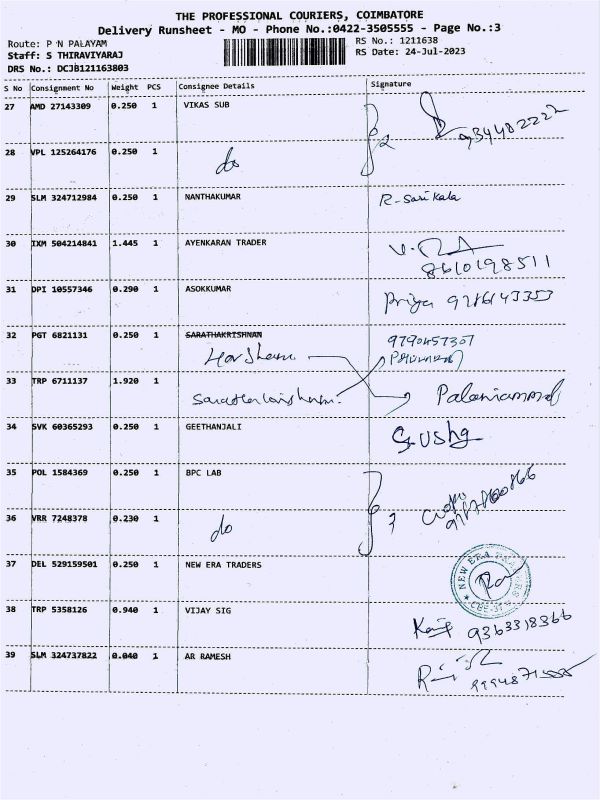 THE PROFESSIONAL COURIERS, COIMBATORE
Delivery Runsheet - MO - Phone No.:0422-3505555 - Page No.:3
Route: P N PALAYAM
RS No.: 1211638
Staff: S THIRAVIYARAJ
RS Date: 24-Jul-2023
DRS No.: DCJB121163803
S No Consignment No Weight PCS Consignee Details Signature
27 AMD 27143309 0.250 1 VIKAS SUB
2
28 VPL 125264176 0.250 1 do
29 SLM 324712984 0.250 1 NANTHAKUMAR R-Sarikala
30 IXM 504214841 1.445 1 AYENKARAN TRADER
8610198511
31 DPI 10557346 0.290 1 ASOKKUMAR Priya 9786143353
32 PGT 6821131 0.250 1 SARATHAKRISHNAN 9790457307
33 TRP 6711137 1.920 1 Palaniammal
34 SVK 60365293 0.250 1 GEETHANJALI
35 POL 1584369 0.250 1 BPC LAB
36 VRR 7248378 0.230 1 do
37 DEL 529159501 0.250 1 NEW ERA TRADERS
NEW ERA
38 TRP 5358126 0.940 1 VIJAY SIG
9363318366
39 SLM 324737822 0.040 1 AR RAMESH